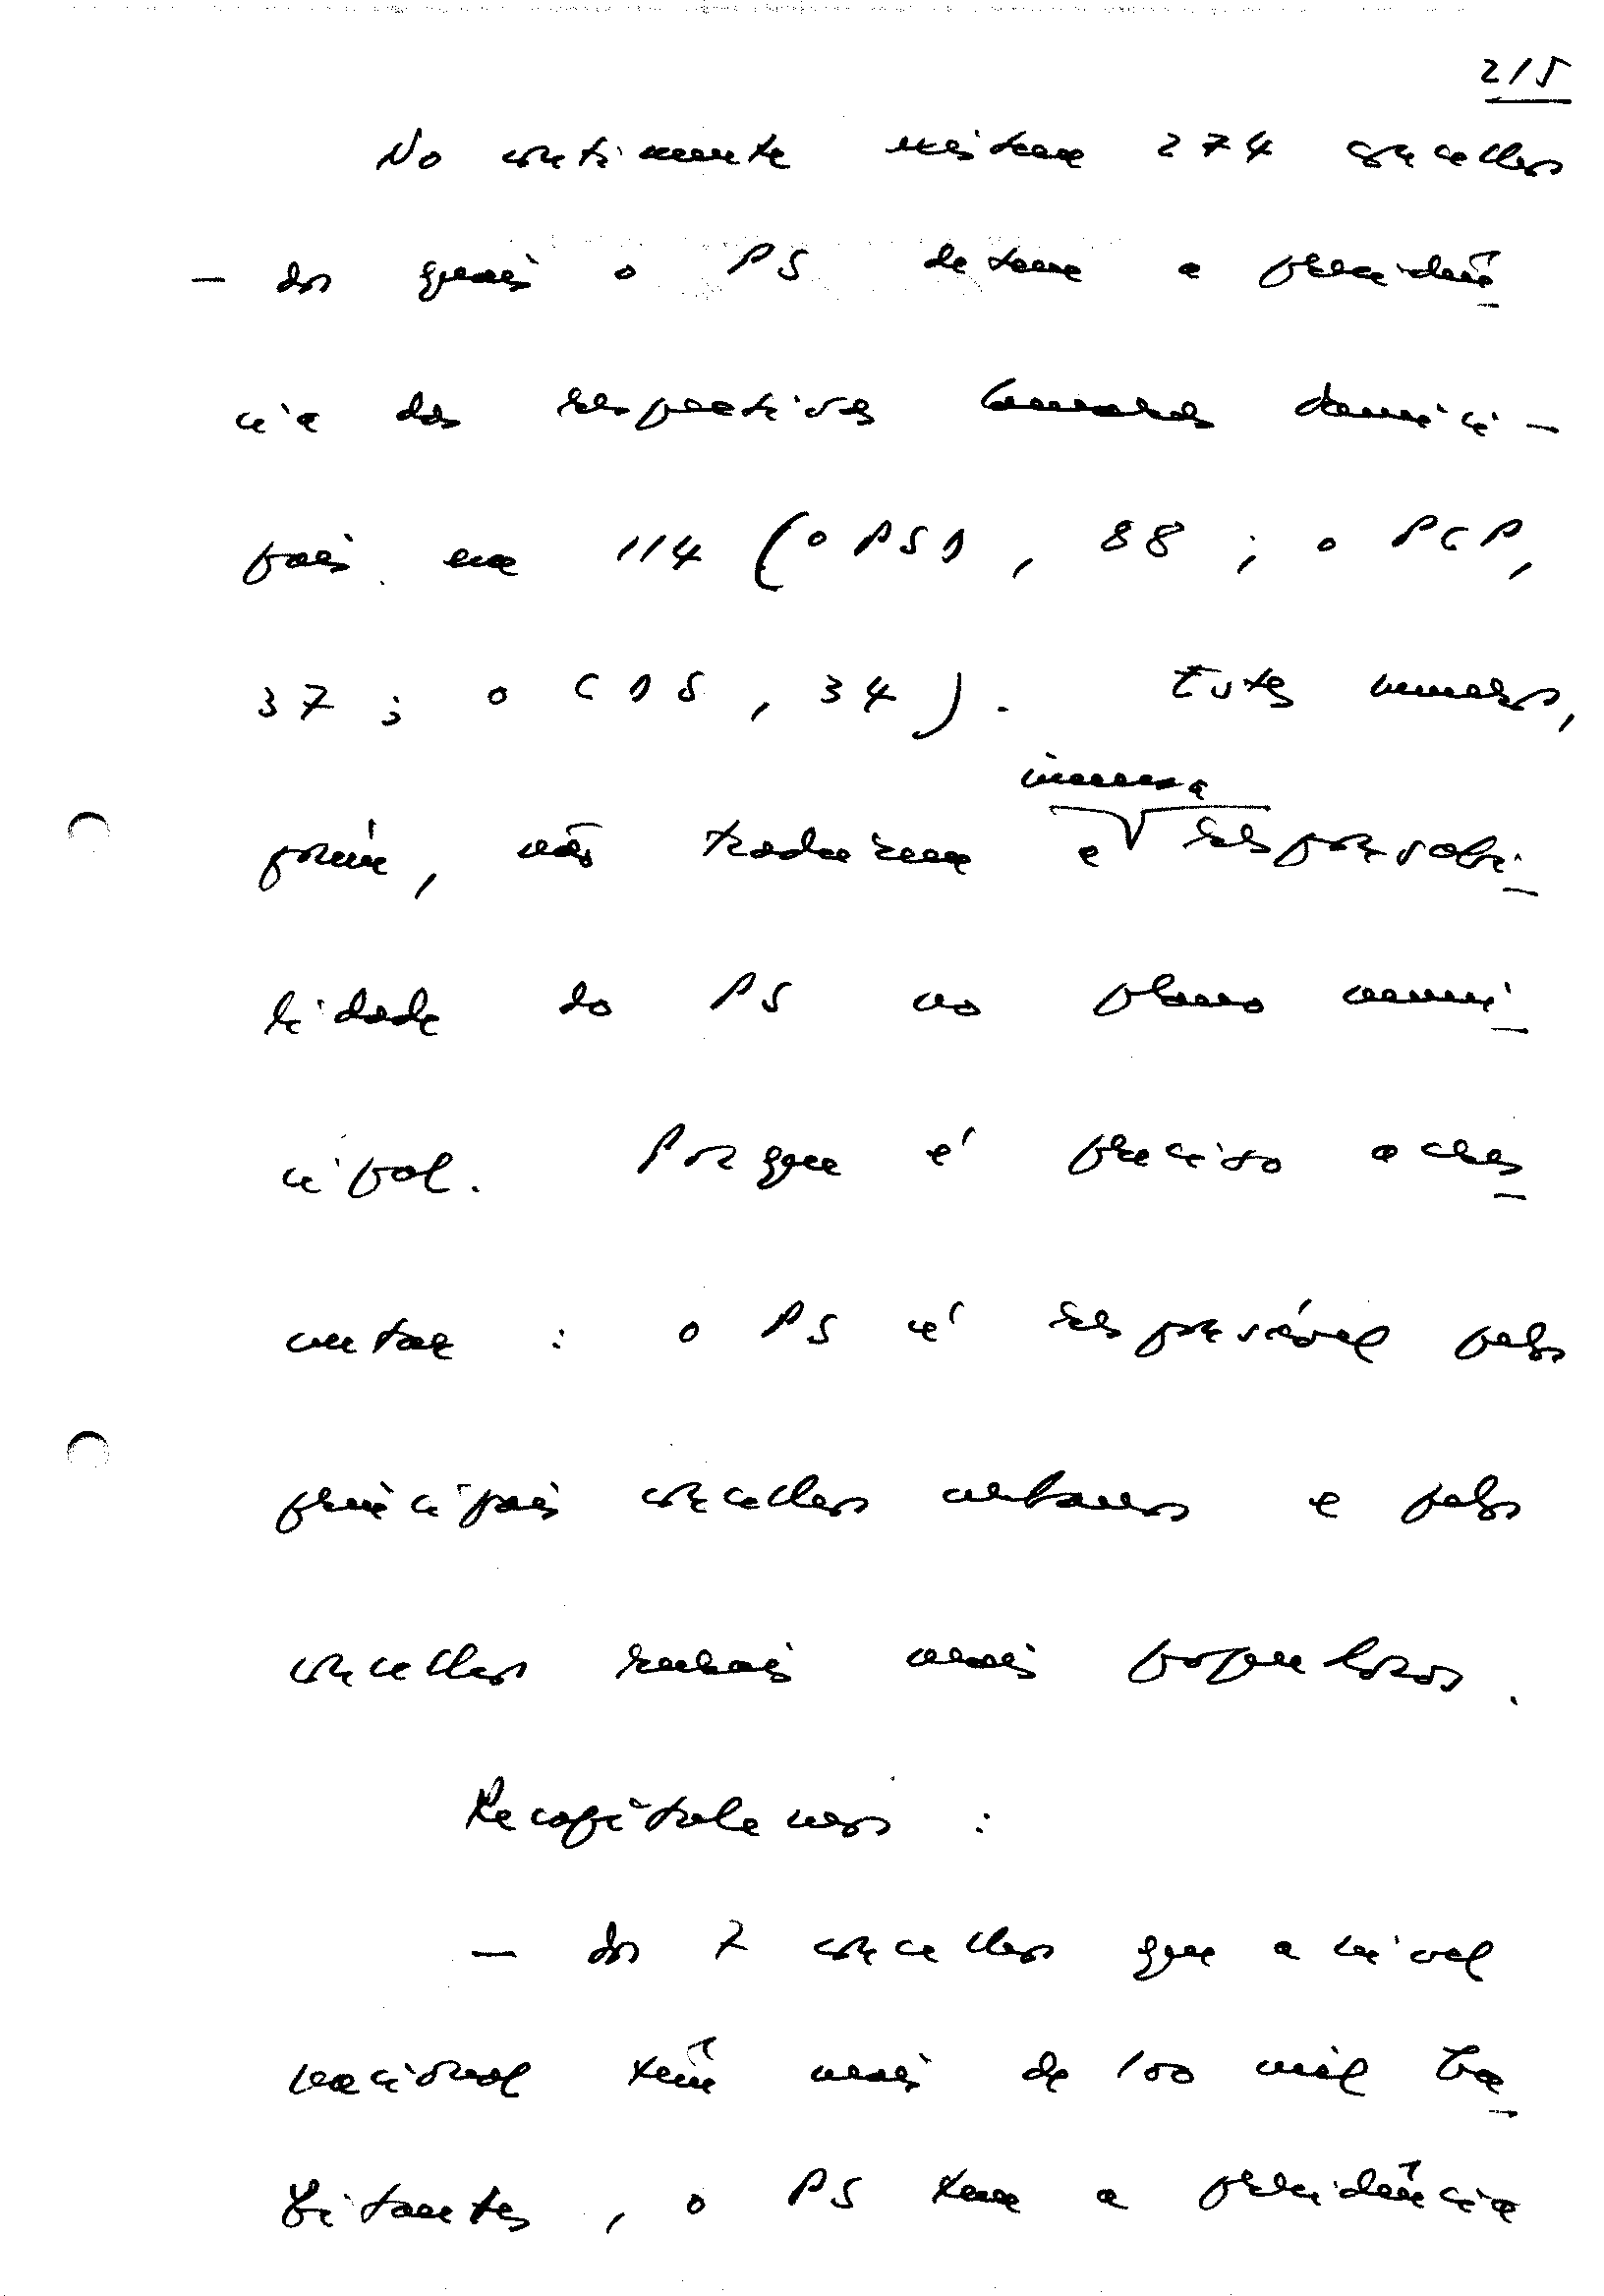 2/5
No continente existem 274 concelhos
— dos quais o PS detem a presidên-
cia das respectivas Camaras Munici-
pais em 114 (o PSD, 88; o PCP,
37; o CDS, 34). Estes numeros,
imensa
porém, não traduzem a responsabi-
lidade do PS no plano muni-
cipal. Porque é preciso acres-
centar: o PS é responsável pelos
principais concelhos urbanos e pelos
concelhos rurais mais populosos.
Recapitulemos:
— dos 7 concelhos que a nível
nacional têm mais de 100 mil ha-
bitantes, o PS tem a presidência